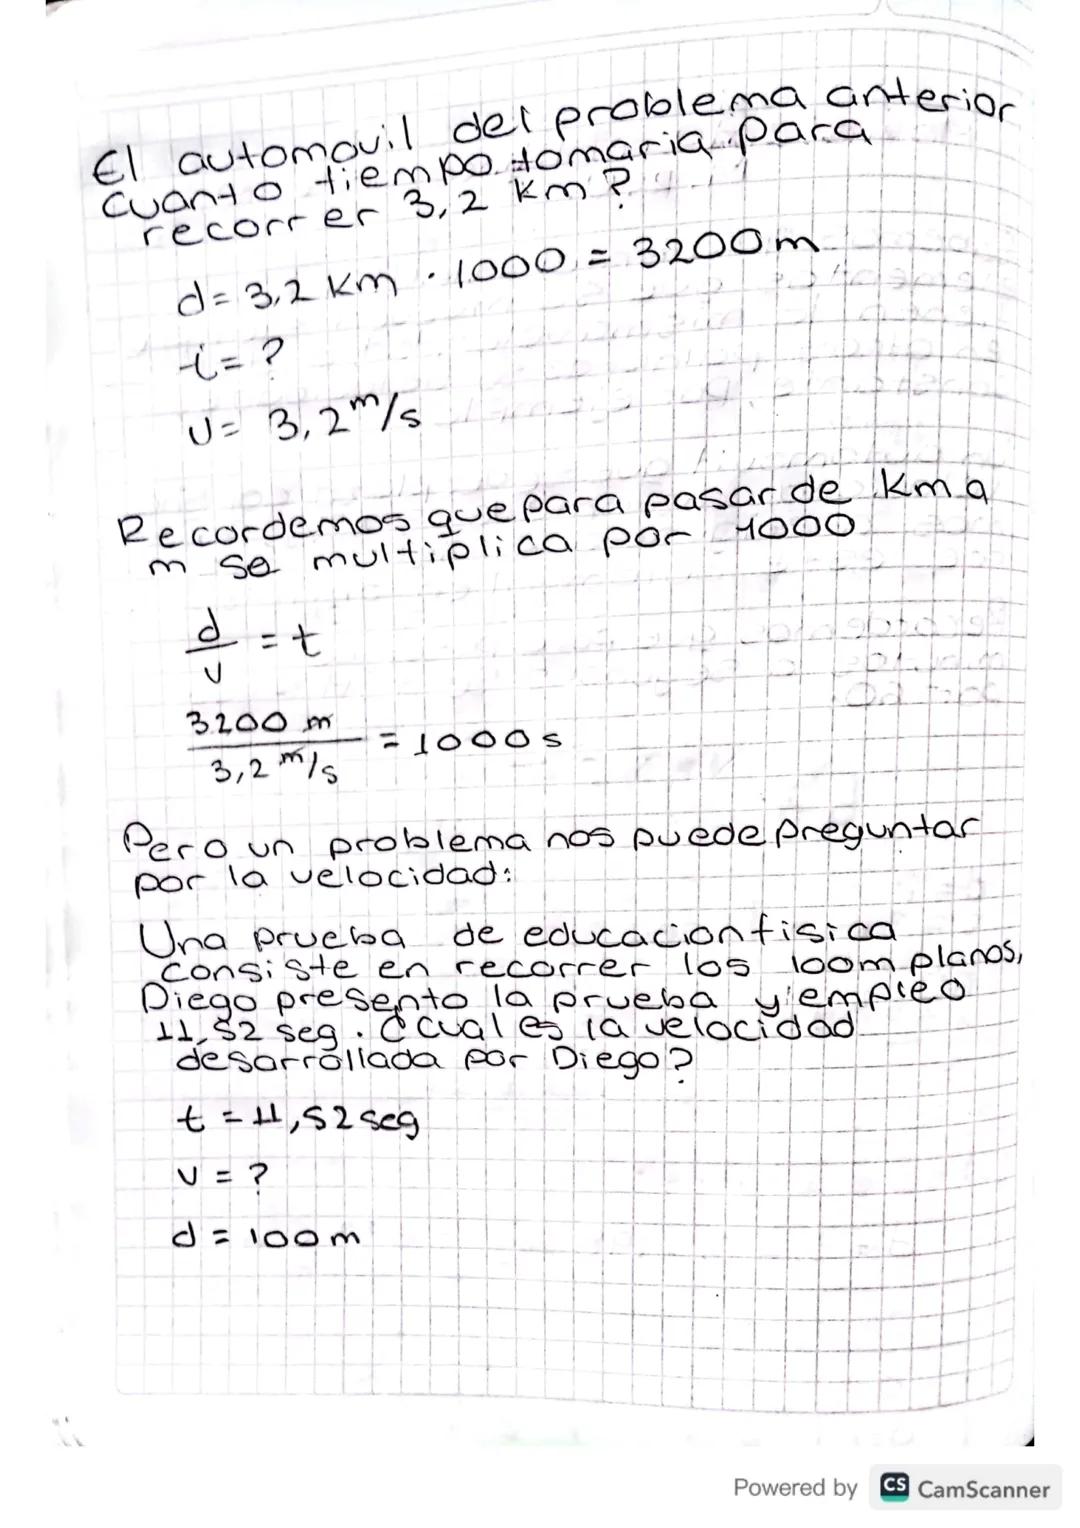 El automovil del problema anterior
cuanto tiempo tomaria para
recorrer 3,2 km?
d= 3,2 km · 1000 = 3200 m
t= ?
v= 3,2 m/s
Recordemos que para pasar de km a
m se multiplica por 1000
d/v = t
3200 m / 3,2 m/s = 1000 s
Pero un problema nos puede preguntar
por la velocidad:
Una prueba de educacion fisica
consiste en recorrer los 100m planos,
Diego presento la prueba y empleo
11,52 seg. ¿Cual es la velocidad
desarrollada por Diego?
t = 11,52 seg
v = ?
d = 100 m
Powered by CS CamScanner